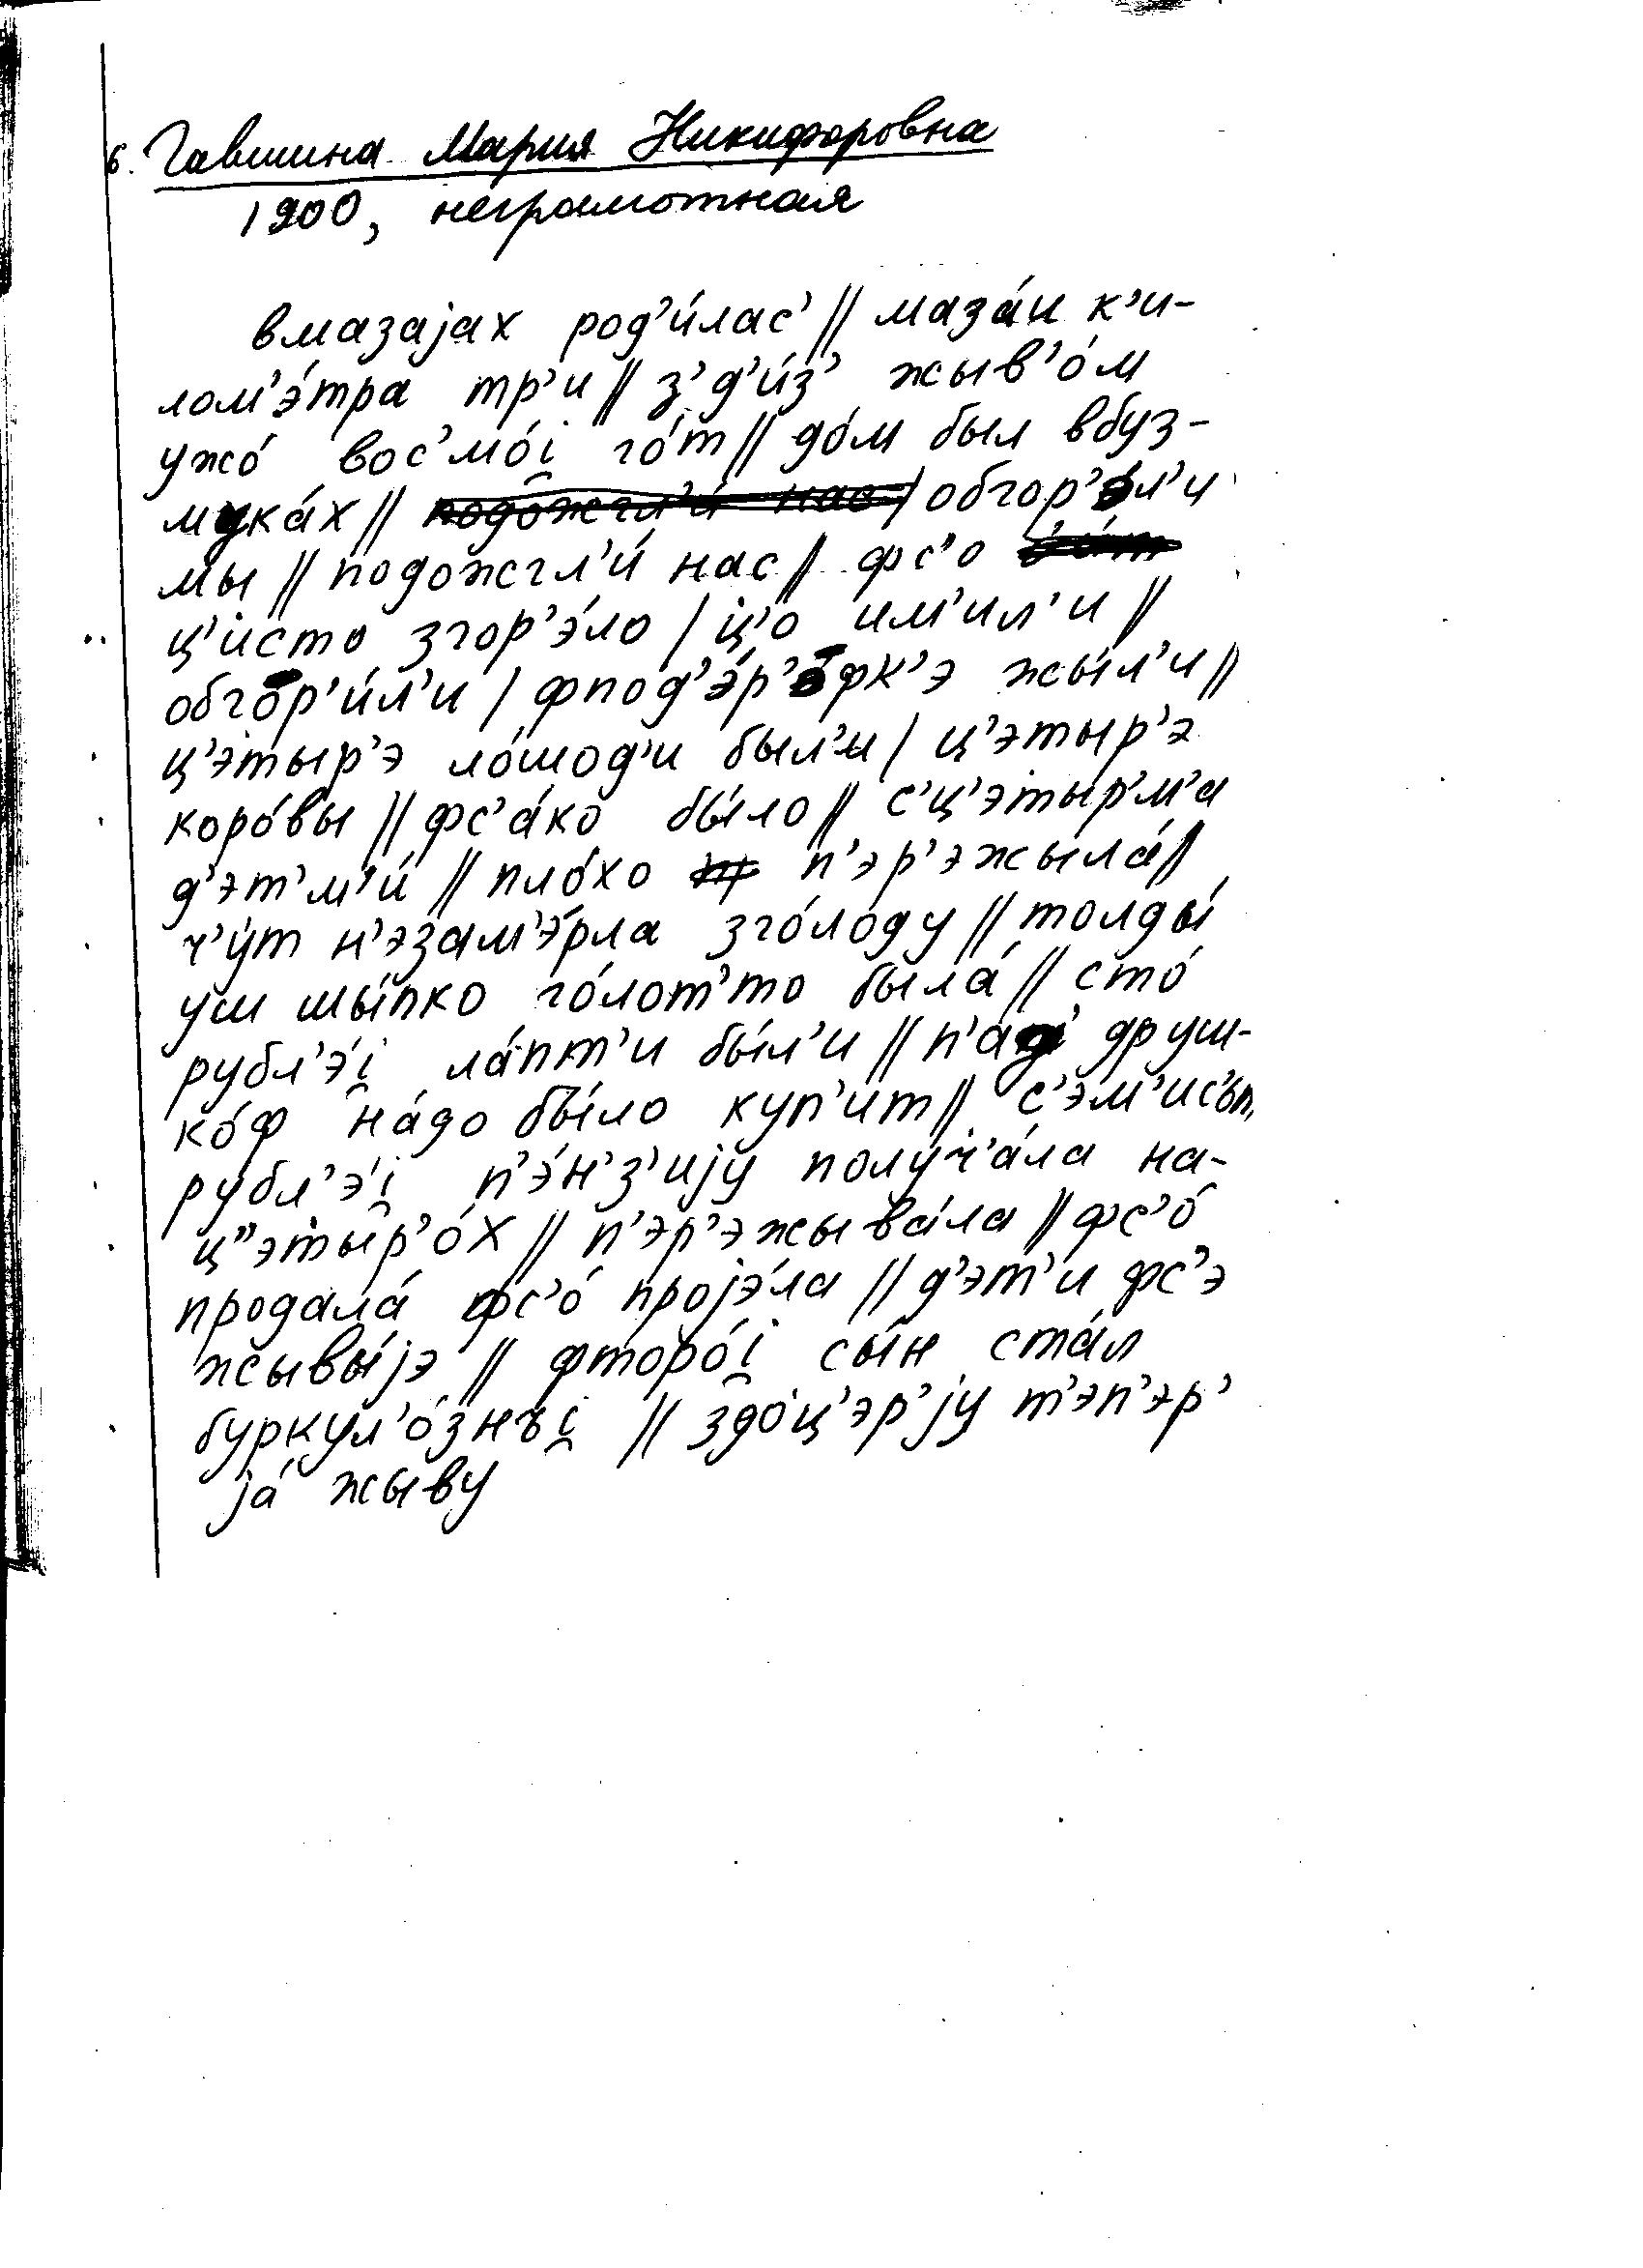 6. Гавшина Мария Никифоровна
1900, неграмотная
вмазаjах род’и́лас’ // маза́и к’и-
лом’э́тра тр’и // з’д’и́з’ жыв’о́м
ужо́ вос’мо́i̯ го́т // до́м был вбуз-
мука́х // обгор’эл’и
мы // подожгл’и́ нас // фс’о
ц’и́сто згор’э́ло / ц’о им’ил’и //
обгор’и́л’и / фпод’э́р’офк’э жы́л’и //
ц’эты́р’э ло́шод’и был’и / ц’эты́р’э
коро́вы // фс’а́ко бы́ло // с’ц’эты́р’м’а
д’эт’м’и́ // пло́хо п’эр’эжыла́ //
ч’у́т н’эзам’э́рла зго́лоду // толды́
уш шы́пко го́лот’то была́ // сто́
рубл’э́i̯ ла́пт’и бы́л’и // друш-
ко́ф на́до бы́ло куп’и́т //
рубл’э́i̯ п’э́н’з’иjу получ’а́ла на-
ц’’эты́р’о́х // п’эр’эжыва́ла // фс’о́
продала́ фс’о́ проjэ́ла // д’э́т’и фс’э
жывы́jэ // фторо́i̯ сы́н ста́л
буркул’о́знъi̯ // здо́ц’эр’jу т’эп’эр’
jа́ жыву